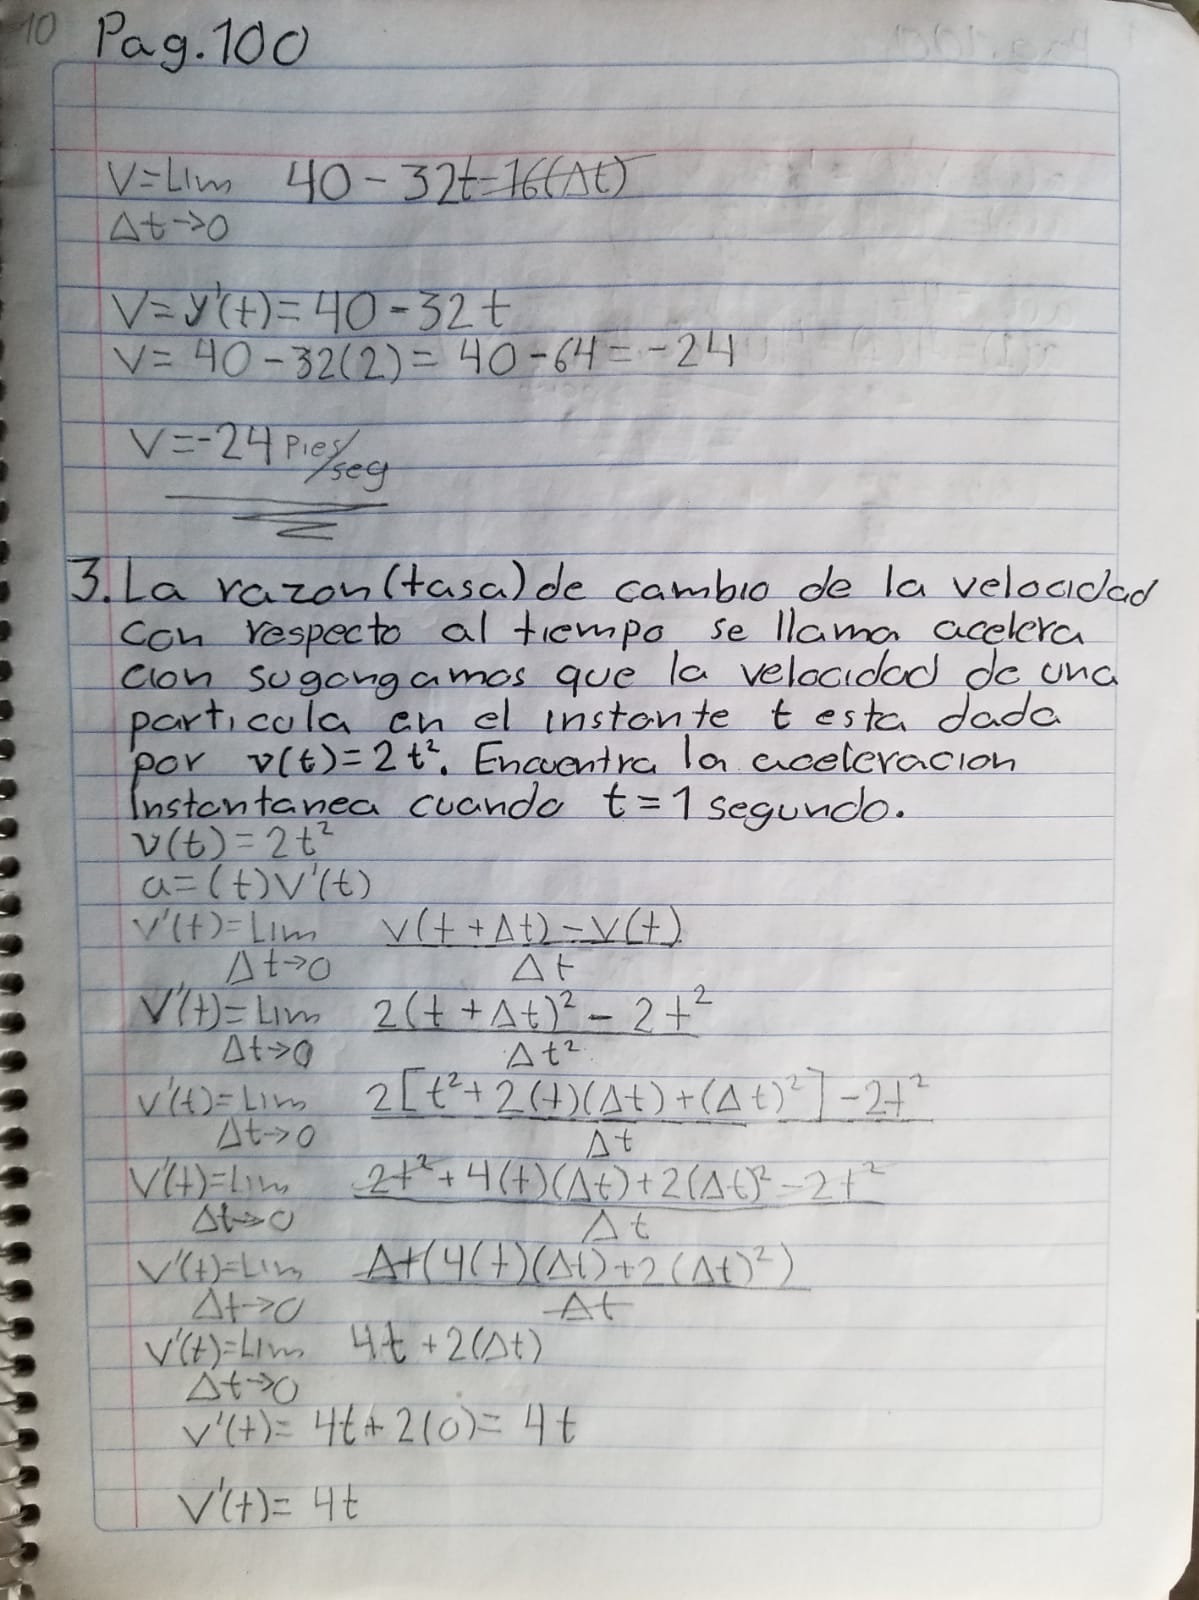 10 Pag.100
V=Lim 40-32t-16(Δt)
Δt→0
V=y'(t)=40-32t
V=40-32(2)=40-64=-24
V=-24 Pies/seg
3. La razon (tasa) de cambio de la velocidad
con respecto al tiempo se llama acelera
cion sugongamos que la velocidad de una
particula en el instante t esta dada
por v(t)=2t². Encuentra la aceleracion
Instantanea cuando t=1 segundo.
v(t)=2t²
a=(t)v'(t)
v'(t)=Lim v(t+Δt)-v(t)
Δt→0 Δt
v'(t)=Lim 2(t+Δt)²-2t²
Δt→0 Δt²
v'(t)=Lim 2[t²+2(t)(Δt)+(Δt)²]-2t²
Δt→0 Δt
v'(t)=Lim 2t²+4(t)(Δt)+2(Δt)²-2t²
Δt→0 Δt
v'(t)=Lim Δt(4(t)(Δt)+2(Δt)²)
Δt→0 Δt
v'(t)=Lim 4t+2(Δt)
Δt→0
v'(t)=4t+2(0)=4t
v'(t)=4t